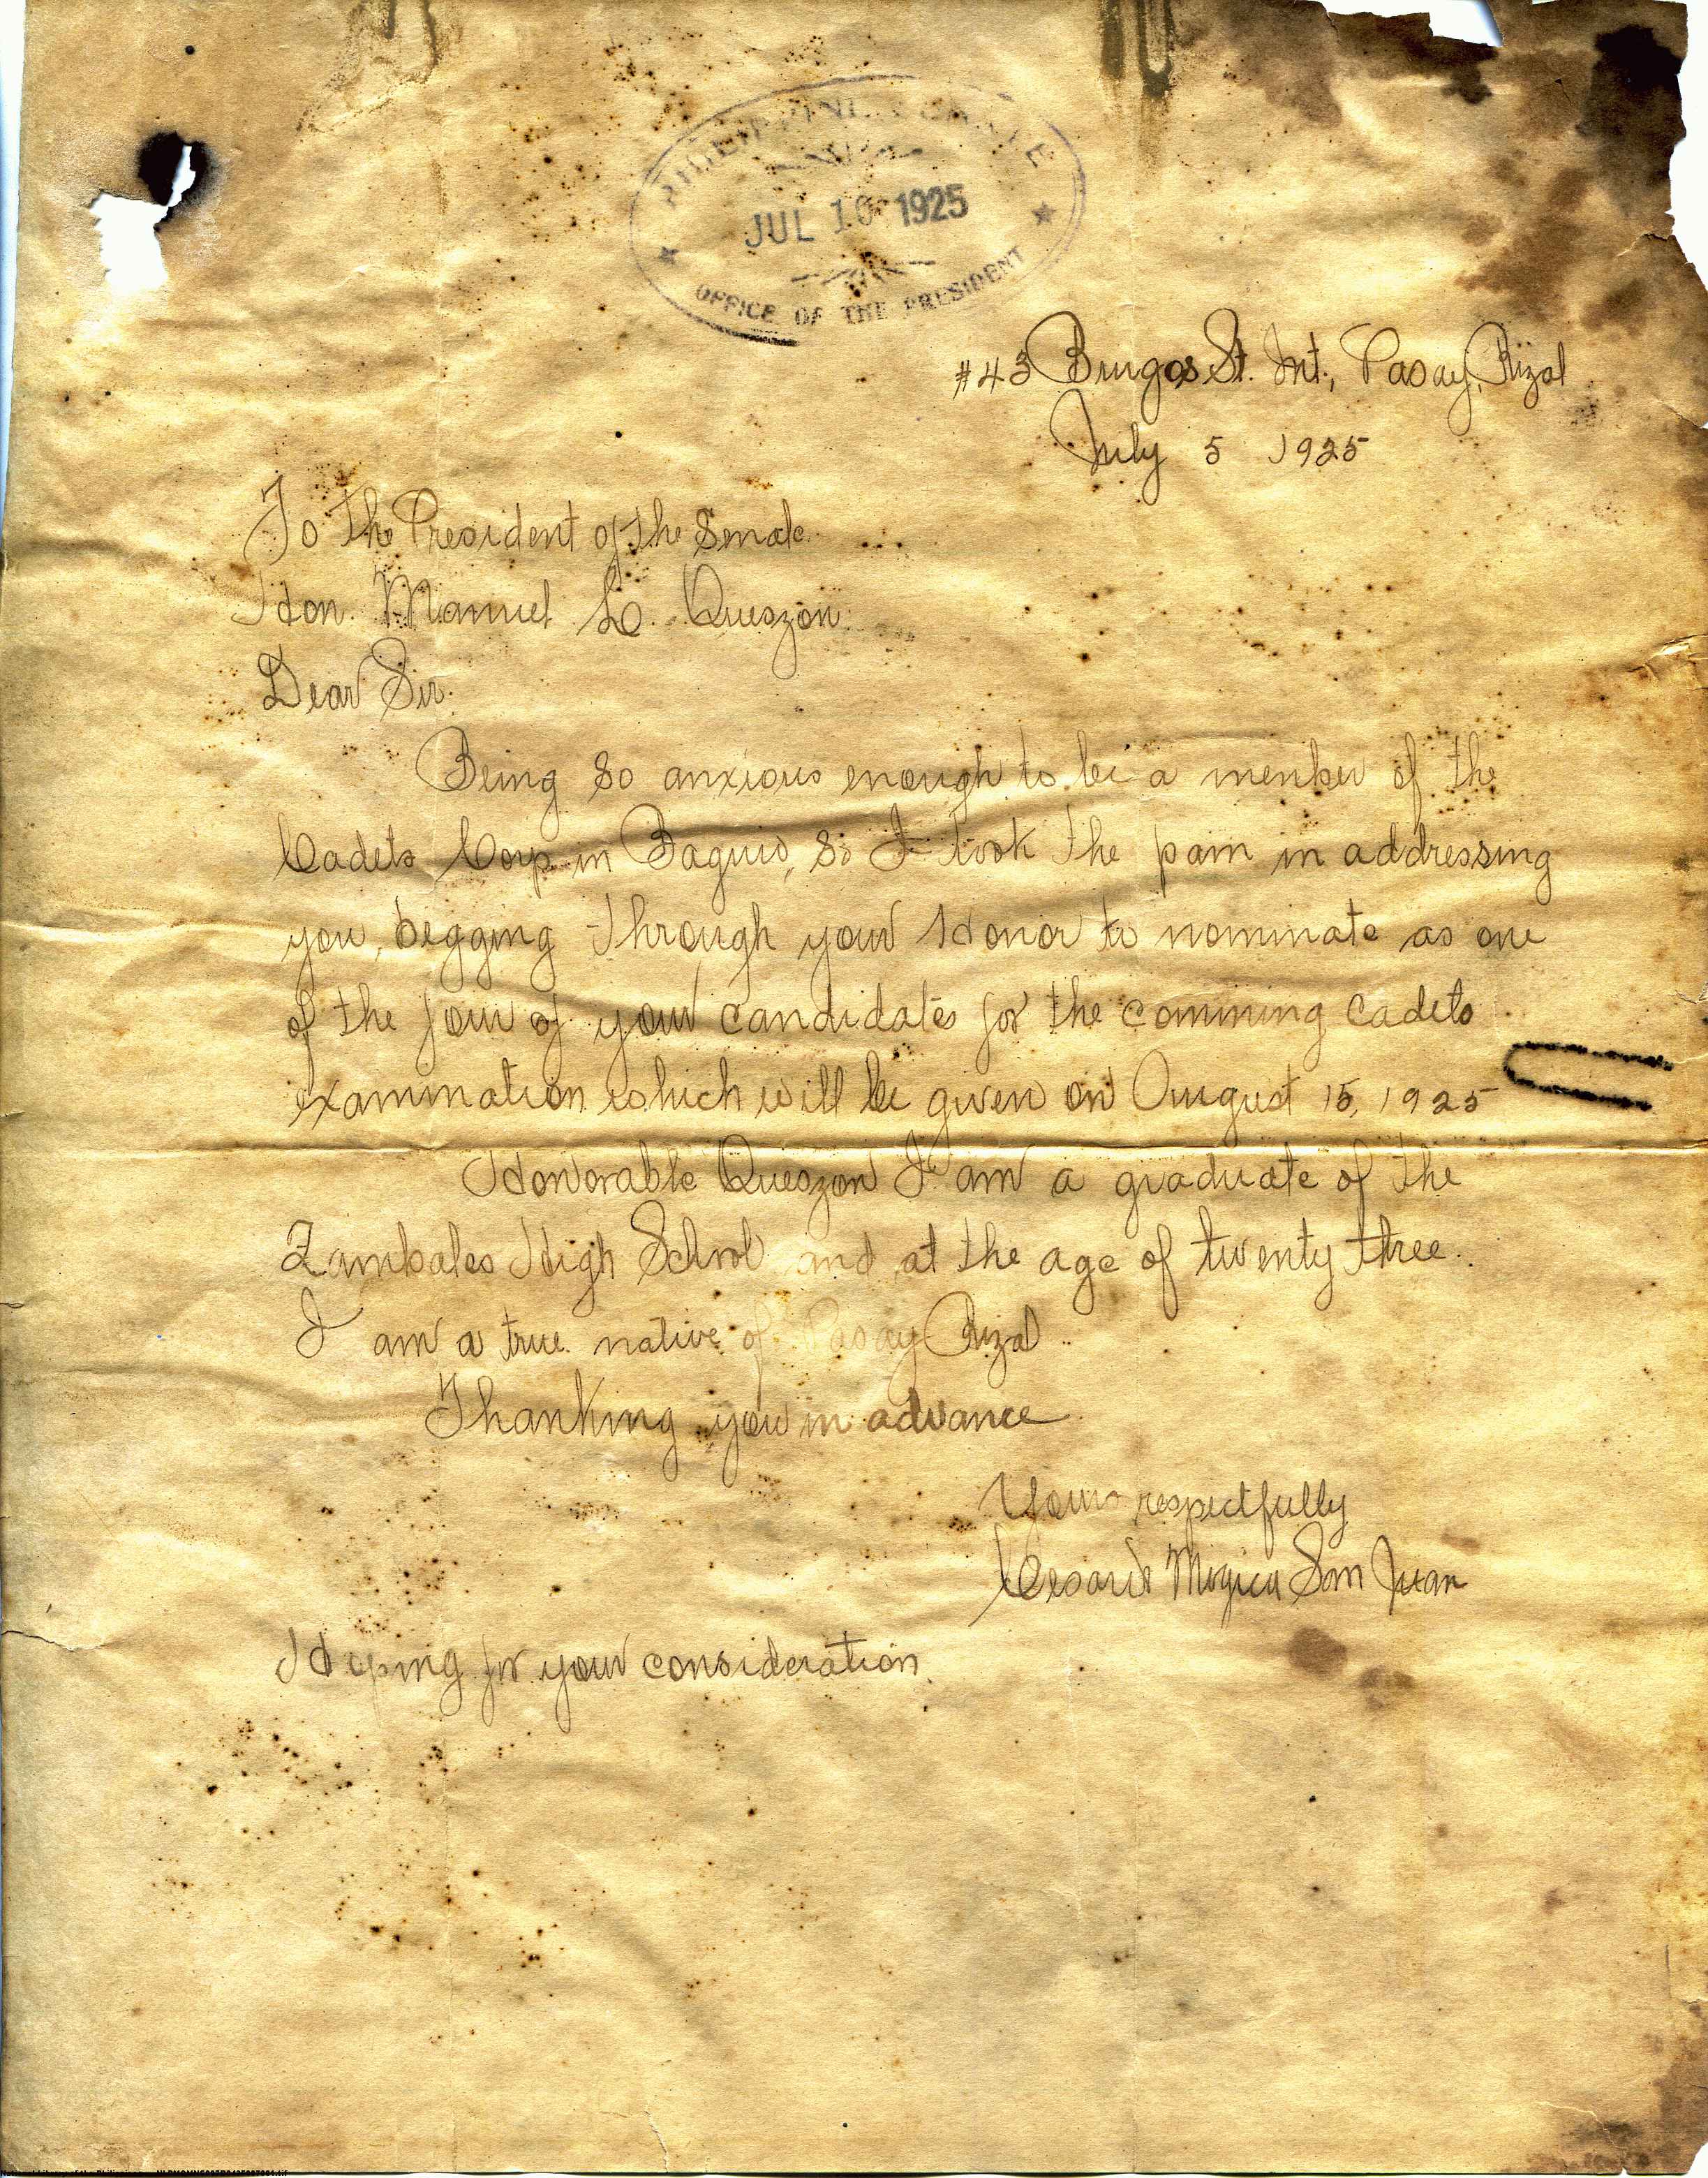 PHILIPPINE SENATE
JUL 10 1925
OFFICE OF THE PRESIDENT
#43 Burgos St. Int., Pasay, Rizal
July 5 1925
To the President of the Senate
Hon. Manuel L. Queszon
Dear Sir:
Being so anxious enough to be a member of the
Cadets Corp in Baguio, so I took the pain in addressing
you, begging through your Honor to nominate as one
of the four of your candidates for the comming cadets
examination which will be given on August 15, 1925
Honorable Queszon I am a graduate of the
Zambales High School and at the age of twenty three.
I am a true native of Pasay Rizal.
Thanking you in advance
Yours respectfully
Cesario Mojica San Juan
Hoping for your consideration